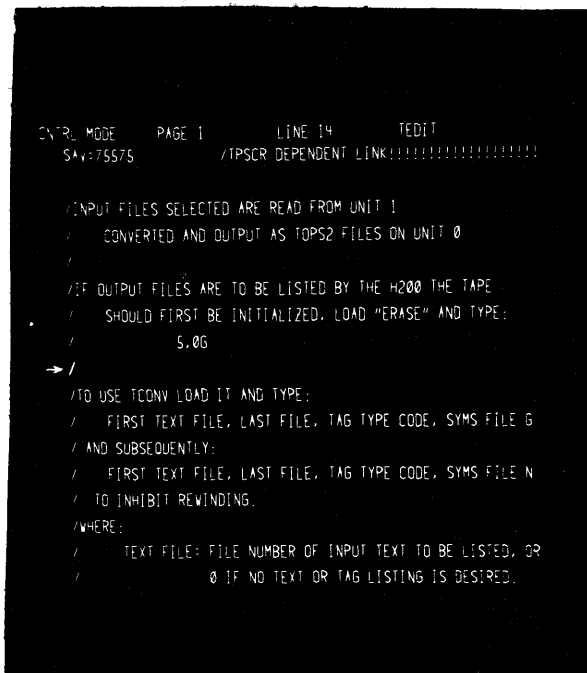 CNTRL MODE PAGE 1 LINE 14 TEDIT
SAV=75575 /TPSCR DEPENDENT LINK!!!!!!!!!!!!!!!!!!!
/INPUT FILES SELECTED ARE READ FROM UNIT 1
/ CONVERTED AND OUTPUT AS TOPS2 FILES ON UNIT 0
/
/IF OUTPUT FILES ARE TO BE LISTED BY THE H200 THE TAPE
/ SHOULD FIRST BE INITIALIZED, LOAD "ERASE" AND TYPE:
/ 5,0G
→ /
/TO USE TCONV LOAD IT AND TYPE:
/ FIRST TEXT FILE, LAST FILE, TAG TYPE CODE, SYMS FILE G
/ AND SUBSEQUENTLY:
/ FIRST TEXT FILE, LAST FILE, TAG TYPE CODE, SYMS FILE N
/ TO INHIBIT REWINDING.
/WHERE:
/ TEXT FILE: FILE NUMBER OF INPUT TEXT TO BE LISTED, OR
/ 0 IF NO TEXT OR TAG LISTING IS DESIRED.